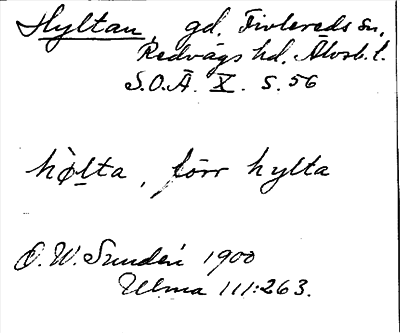 Hyltan, gd, Finnereds sn,
Redvägs hd. Älvsb. l.
S.O.Ä. X. s. 56
hø̀lta, förr hylta
O. W. Sundén 1900
Ulma 111:263.